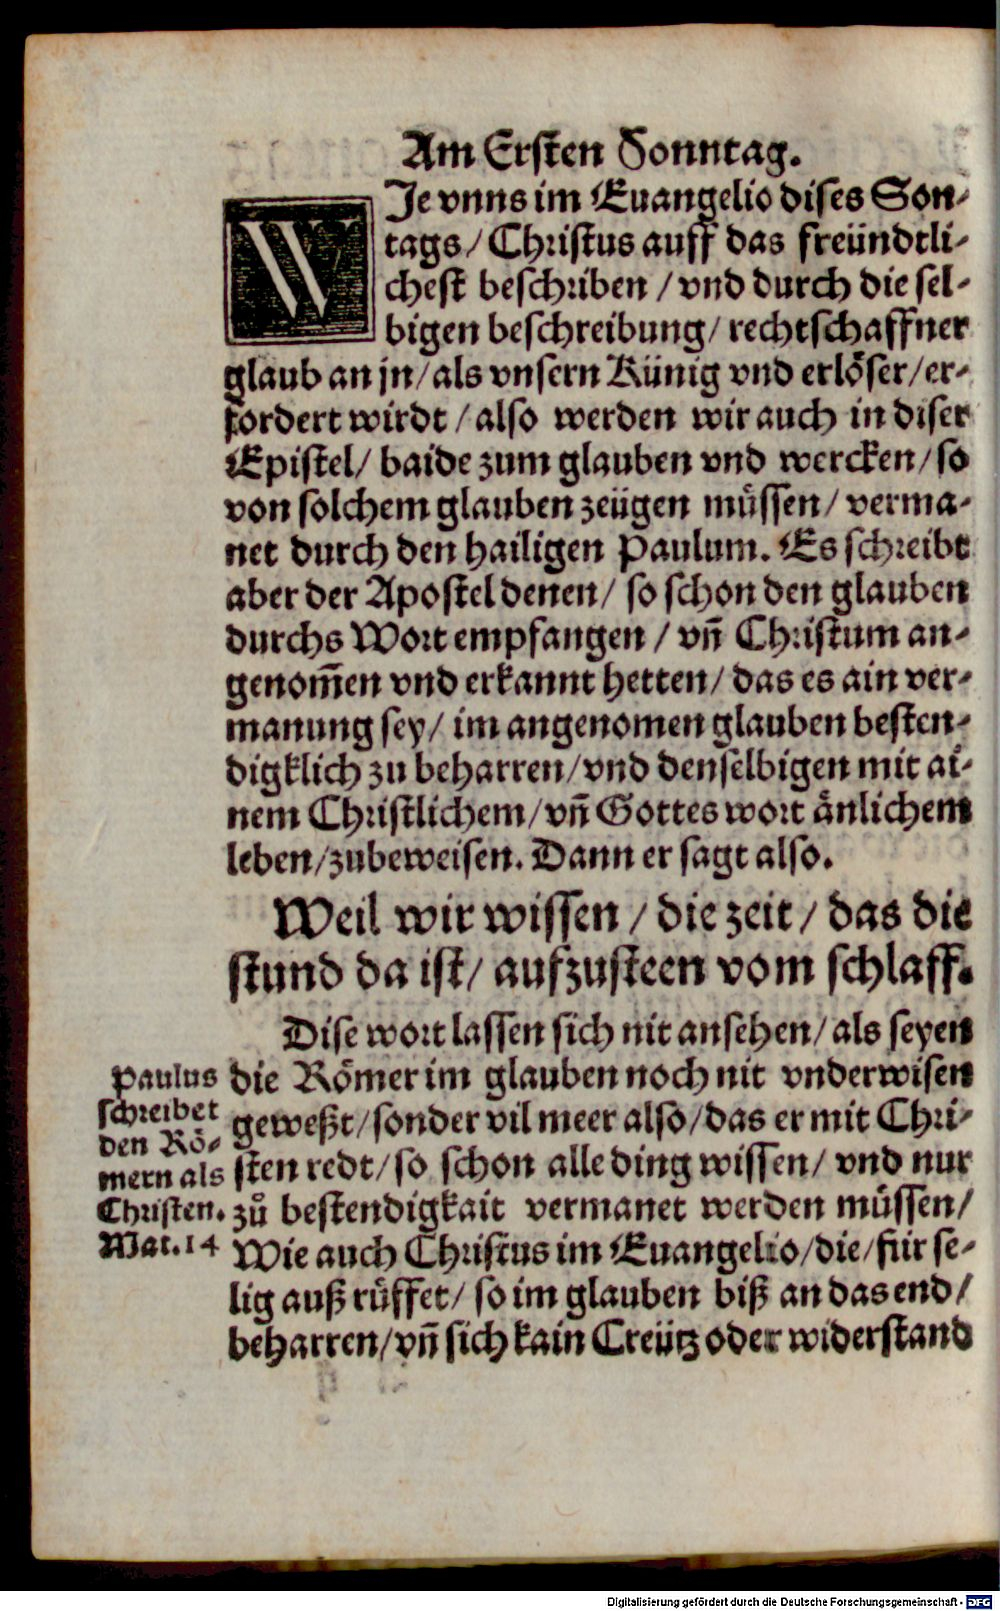 Am Ersten Sonntag.
WJe vnns im Euangelio dises Son-
tags/ Christus auff das freündtli-
chest beschriben / vnd durch die sel-
bigen beschreibung/ rechtschaffner
glaub an jn/ als vnsern Künig vnd erlöser/ er-
fordert wirdt / also werden wir auch in diser
Epistel/ baide zum glauben vnd wercken/ so
von solchem glauben zeügen müssen/ verma-
net durch den hailigen Paulum. Es schreibt
aber der Apostel denen/ so schon den glauben
durchs Wort empfangen / vñ Christum an-
genom̃en vnd erkannt hetten/ das es ain ver-
manung sey/ im angenomen glauben besten-
digklich zu beharren/ vnd denselbigen mit ai-
nem Christlichem/ vñ Gottes wort änlichem
leben/ zubeweisen. Dann er sagt also.
Weil wir wissen / die zeit / das die
stund da ist/ aufzusteen vom schlaff.
Dise wort lassen sich nit ansehen/ als seyen
die Römer im glauben noch nit vnderwisen
geweßt/ sonder vil meer also/ das er mit Chri-
sten redt/ so schon alle ding wissen/ vnd nur
zů bestendigkait vermanet werden müssen/
Wie auch Christus im Euangelio/ die/ für se-
lig auß rüffet/ so im glauben biß an das end/
beharren/ vñ sich kain Creütz oder widerstand
Paulus
schreibet
den Rö-
mern als
Christen.
Mat. 14
Digitalisierung gefördert durch die Deutsche Forschungsgemeinschaft - DFG